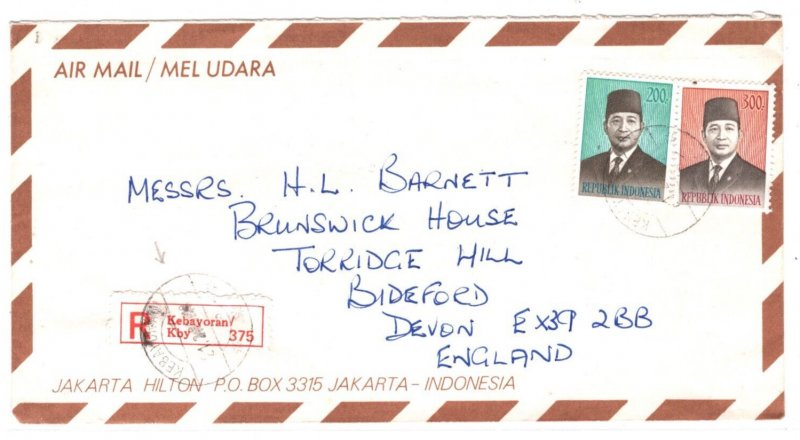 AIR MAIL / MEL UDARA
200.-
300.-
REPUBLIK INDONESIA
REPUBLIK INDONESIA
MESSRS. H.L. BARNETT
BRUNSWICK HOUSE
TORRIDGE HILL
BIDEFORD
DEVON EX39 2BB
ENGLAND
R Kebayoran/
Kby 375
JAKARTA HILTON P.O. BOX 3315 JAKARTA - INDONESIA